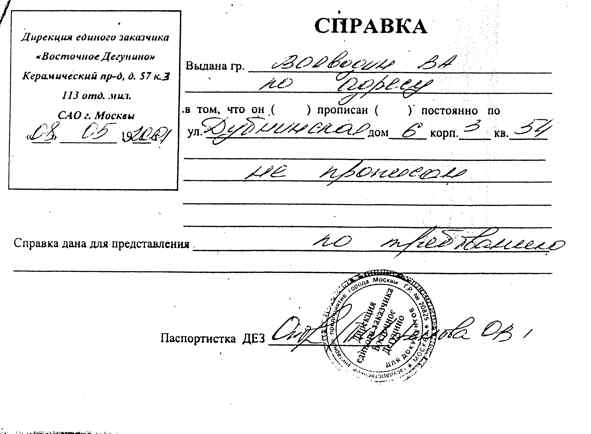 Дирекция единого заказчика
«Восточное Дегунино»
Керамический пр-д, д. 57 к.3
113 отд. мил.
САО г. Москвы
08 05 2001
СПРАВКА
Выдана гр. Воеводин ВА
по адресу
в том, что он ( ) прописан ( ) постоянно по
ул. Дубнинская дом 6 корп. 3 кв. 54
не прописан
Справка дана для представления по требованию
Паспортистка ДЕЗ ОВ
дирекция
единого заказчика
Восточное
Дегунино